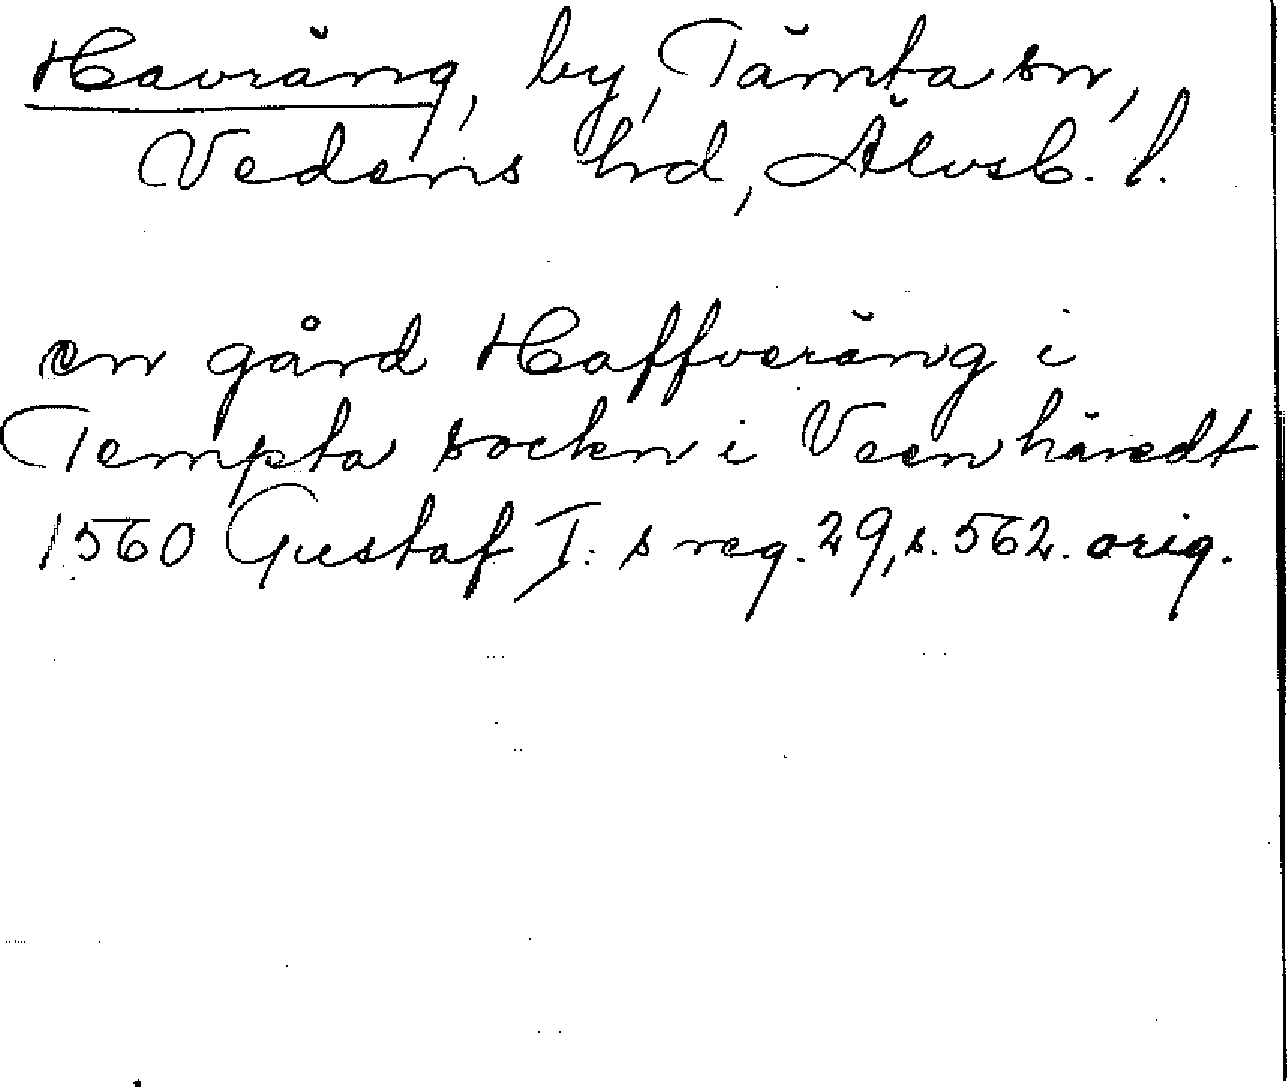 Havräng, by, Tämta sn,
Vedens hd, Älvsb. l.
en gård Haffveräng i
Tempta sockn i Veen häredt
1560 Gustaf I:s reg. 29, s. 562. orig.